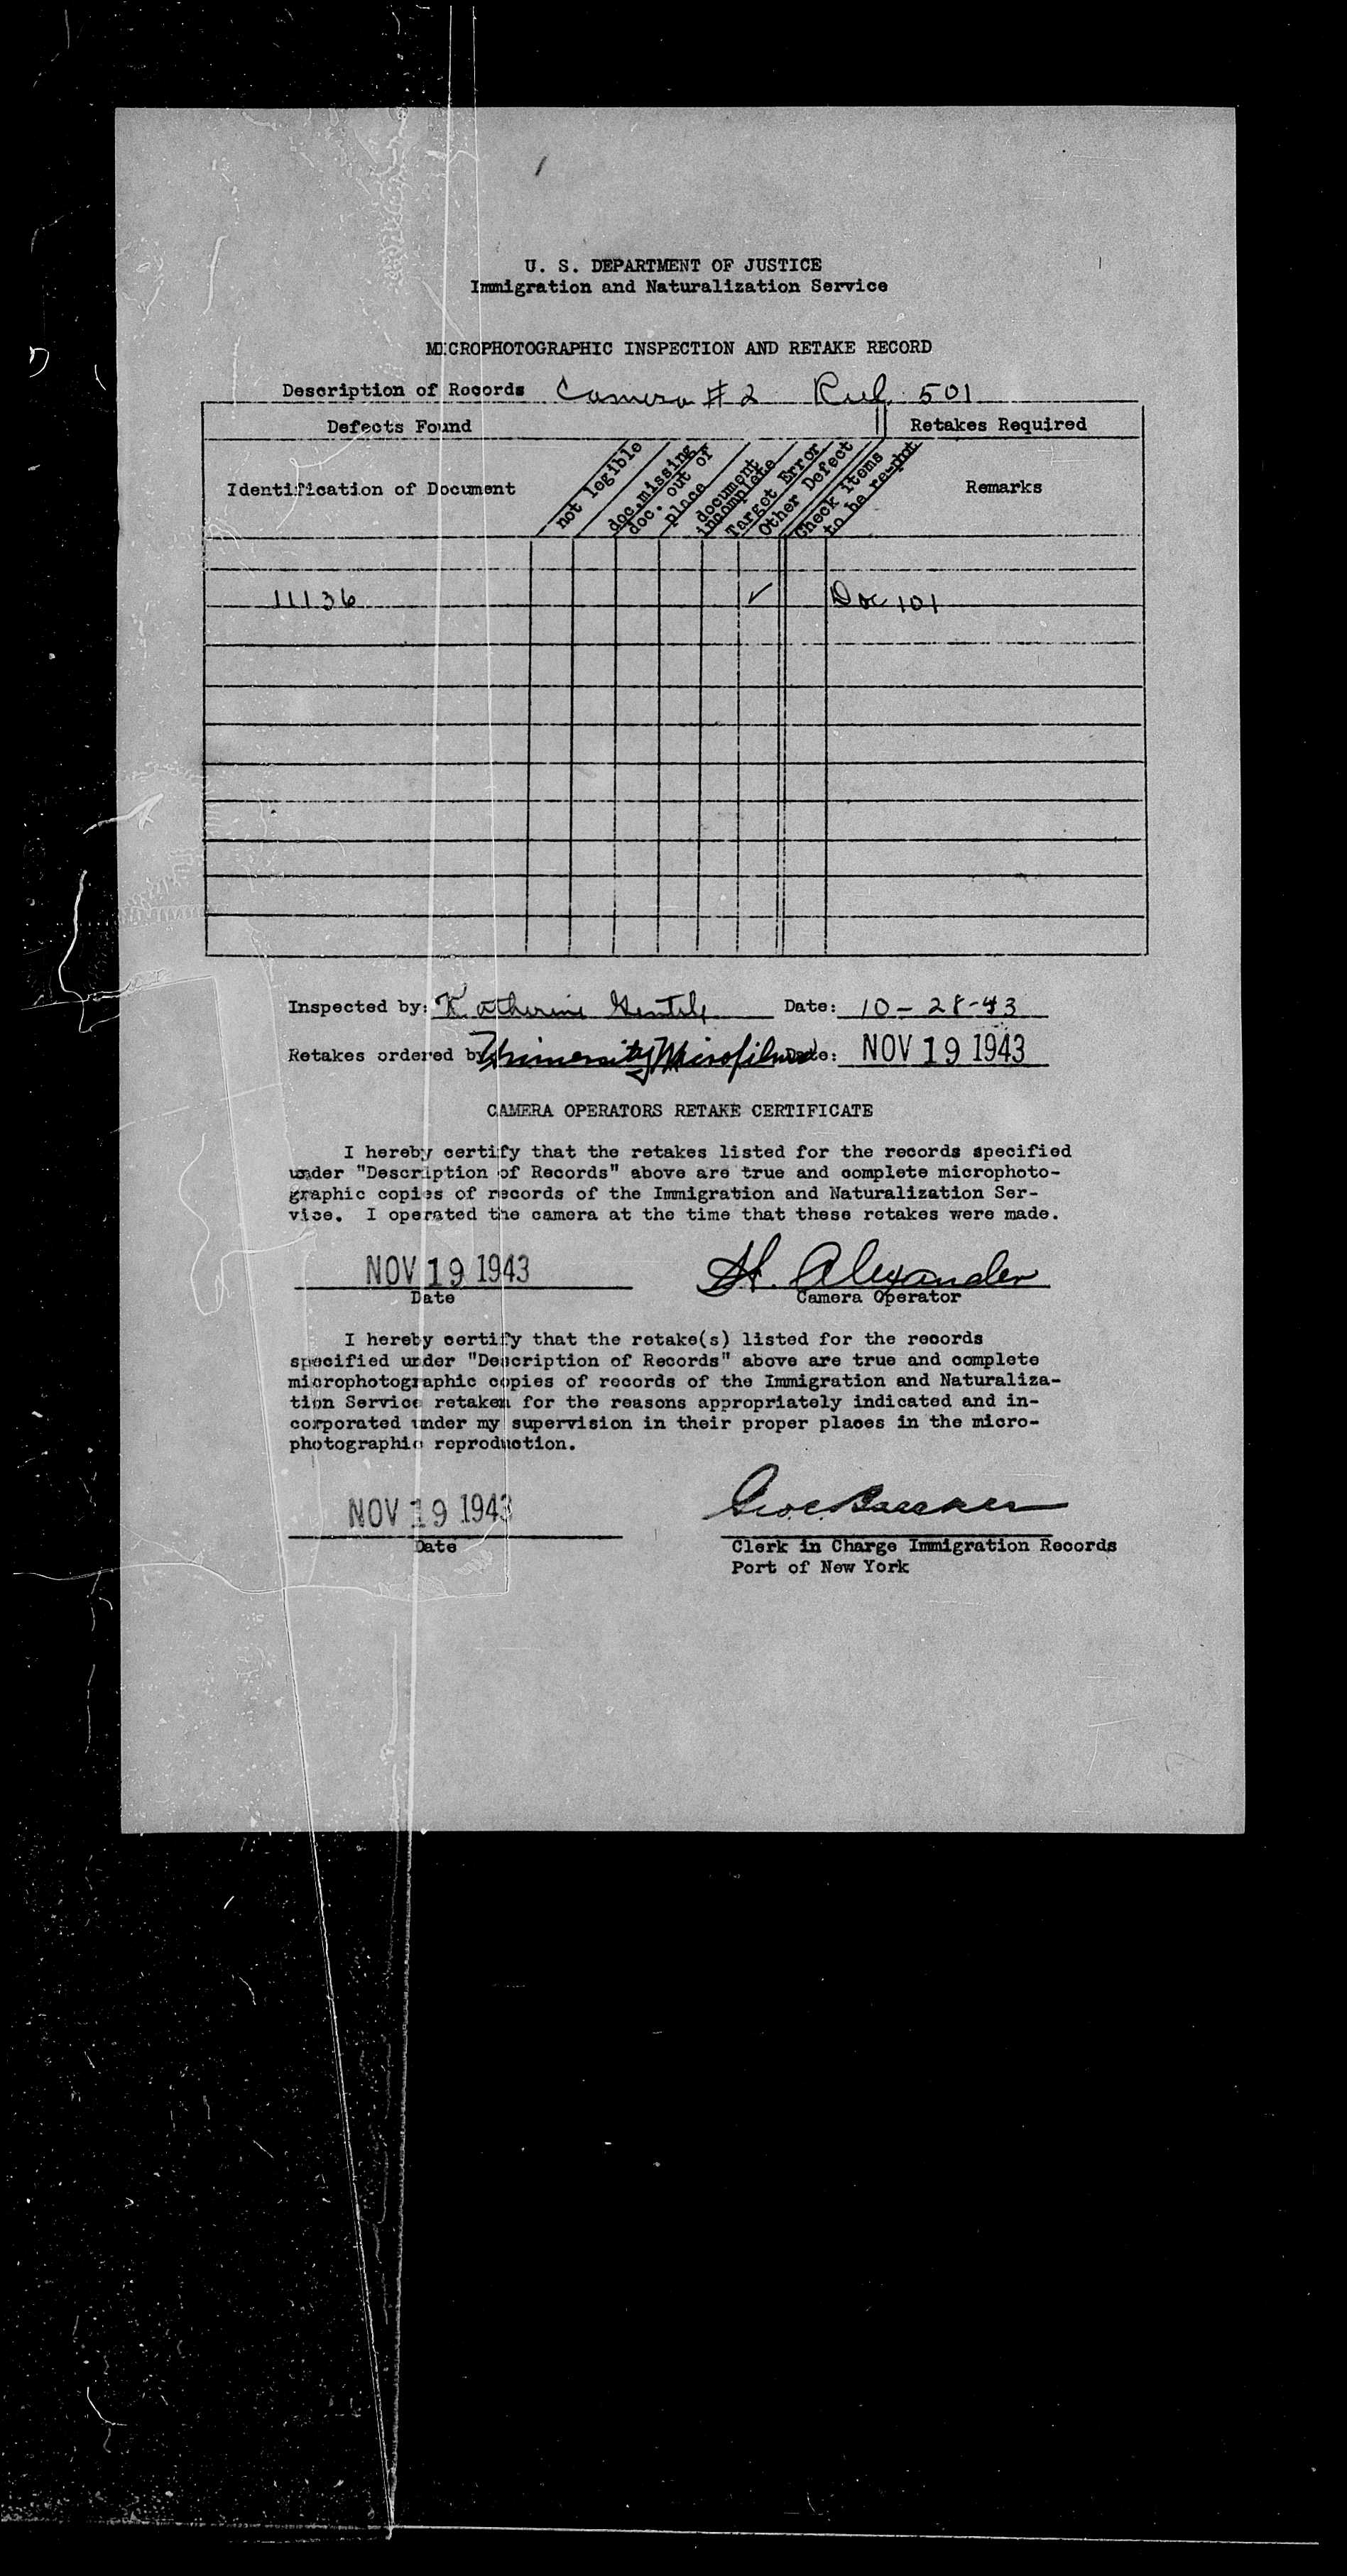 U. S. DEPARTMENT OF JUSTICE
Immigration and Naturalization Service
MICROPHOTOGRAPHIC INSPECTION AND RETAKE RECORD
Description of Records Camera # 2 501
Defects Found Retakes Required
Identification of Document
not legible
doc.missing
doc. out of
place
document
incomplete
Target Error
Other Defect
Check items
to be re-phot
Remarks
11136 ✓ Doc 101
Inspected by: Katherine Gentile Date: 10-28-43
Retakes ordered by University Microfilms Date: NOV 19 1943
CAMERA OPERATORS RETAKE CERTIFICATE
I hereby certify that the retakes listed for the records specified
under "Description of Records" above are true and complete microphoto-
graphic copies of records of the Immigration and Naturalization Ser-
vice. I operated the camera at the time that these retakes were made.
NOV 19 1943 H. Alexander
Date Camera Operator
I hereby certify that the retake(s) listed for the records
specified under "Description of Records" above are true and complete
microphotographic copies of records of the Immigration and Naturaliza-
tion Service retaken for the reasons appropriately indicated and in-
corporated under my supervision in their proper places in the micro-
photographic reproduction.
NOV 19 1943
Date Clerk in Charge Immigration Records
Port of New York